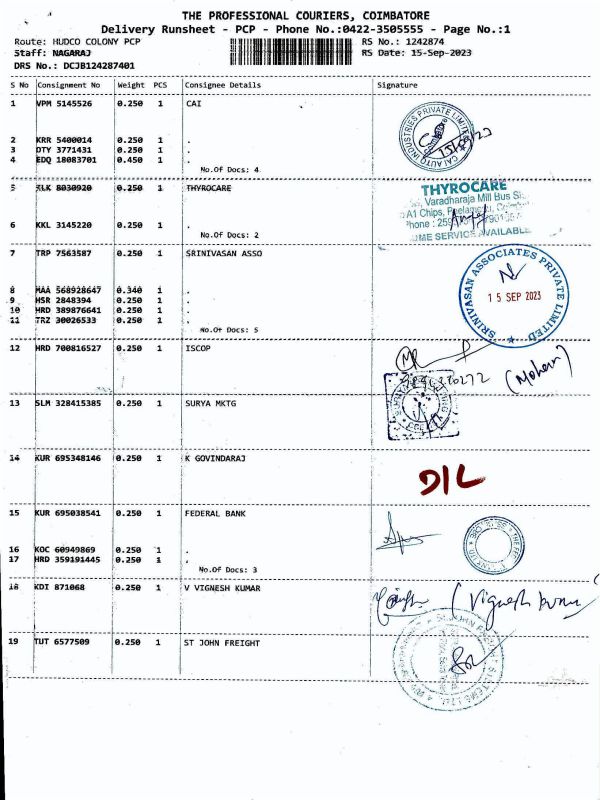 THE PROFESSIONAL COURIERS, COIMBATORE
Delivery Runsheet - PCP - Phone No.:0422-3505555 - Page No.:1
Route: HUDCO COLONY PCP RS No.: 1242874
Staff: NAGARAJ RS Date: 15-Sep-2023
DRS No.: DCJB124287401
S No Consignment No Weight PCS Consignee Details Signature
1 VPM 5145526 0.250 1 CAI
CAI AUTO INDUSTRIES PRIVATE LIMITED
2 KRR 5400014 0.250 1 .
3 DTY 3771431 0.250 1 .
4 EDQ 18083701 0.450 1 .
No.Of Docs: 4
5 KLK 8030920 0.250 1 THYROCARE
THYROCARE
Varadharaja Mill Bus
A1 Chips,
Phone :
SERVICE AVAILABLE
6 KKL 3145220 0.250 1 .
No.Of Docs: 2
7 TRP 7563587 0.250 1 SRINIVASAN ASSO
SRINIVASAN ASSOCIATES PRIVATE LIMITED
15 SEP 2023
8 MAA 568928647 0.340 1 .
9 HSR 2848394 0.250 1 .
10 HRD 389876641 0.250 1 .
11 TRZ 30026533 0.250 1 .
No.Of Docs: 5
12 HRD 700816527 0.250 1 ISCOP
(Mohan)
13 SLM 328415385 0.250 1 SURYA MKTG
14 KUR 695348146 0.250 1 K GOVINDARAJ
D/L
15 KUR 695038541 0.250 1 FEDERAL BANK
16 KOC 60949869 0.250 1 .
17 HRD 359191445 0.250 1 .
No.Of Docs: 3
18 KDI 871068 0.250 1 V VIGNESH KUMAR
(Vignesh kumar)
19 TUT 6577509 0.250 1 ST JOHN FREIGHT